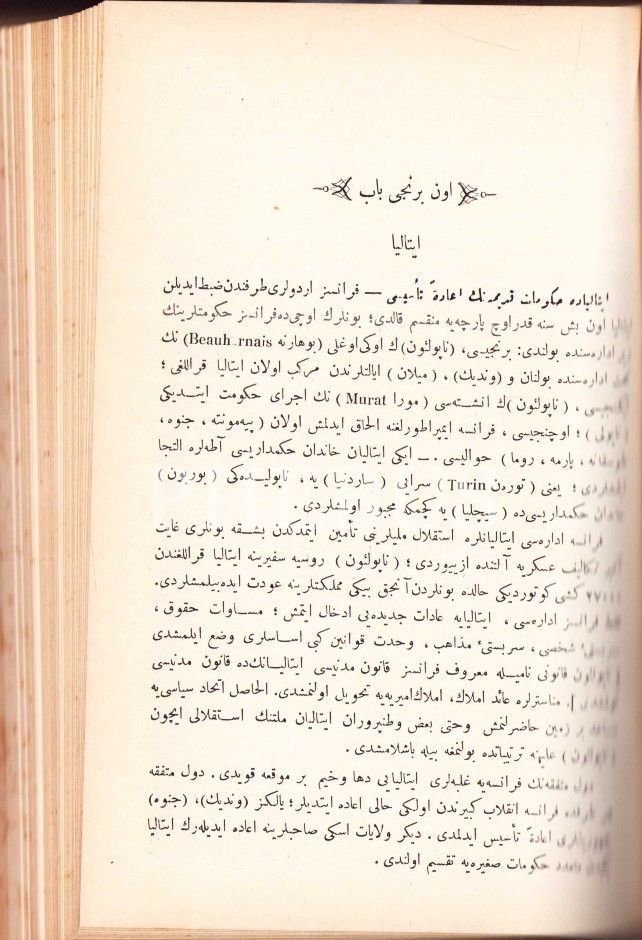 اون برنجی باب
ایتالیا
ایتالیاده حکومات قدیمه‌نك اعادهٔ تأسیسی — فرانسز اردولری طرفندن ضبط ایدیلن
اون بش سنه قدر اوچ پارچه‌یه منقسم قالدی؛ بونلرك اوچی‌ده فرانسز حکومتلرینك
اداره‌سنده بولندی: برنجیسی، (ناپولئون)ك اوکی اوغلی (بوهارنه Beauh.rnais) نك
اداره‌سنده بولنان و (وندیك) ، (میلان) ایالتلرندن مرکب اولان ایتالیا قراللغی ؛
، (ناپولئون)ك انشته‌سی (مورا Murat) نك اجرای حکومت ایتدیکی
؛ اوچنجیسی ، فرانسه ایمپراطورلغنه الحاق ایدلمش اولان (پیه‌مونته ، جنوه،
، پارمه ، روما) حوالیسی . — ایکی ایتالیان خاندان حکمداریسی آطه‌لره التجا
؛ یعنی (تورەن Turin) سرایی (ساردنیا) یه ، ناپولیده‌کی (بوربون)
حکمداریسی‌ده (سیچلیا) یه کچمکه مجبور اولمشلردی .
فرانسه اداره‌سی ایتالیانلره استقلال ملیلرینی تأمین ایتمدکدن بشقه بونلری غایت
عسکریه آلتنده ازییوردی ؛ (ناپولئون) روسیه سفرینه ایتالیا قراللغندن
۲۷۰۰۰ کشی کوتوردیکی حالده بونلردن آنجق بیکی مملکتلرینه عودت ایده‌بیلمشلردی.
فرانسز اداره‌سی ، ایتالیایه عادات جدیده‌یی ادخال ایتمش ؛ مساوات حقوق ،
شخصی ، سربستیٔ مذاهب ، وحدت قوانین کبی اساسلری وضع ایلمشدی
قانونی نامیله معروف فرانسز قانون مدنیسی ایتالیانك‌ده قانون مدنیسی
مناسترلره عائد املاك، املاك امیریه‌یه تحویل اولنمشدی. الحاصل اتحاد سیاسی‌یه
زمین حاضرلنمش وحتی بعض وطنپروران ایتالیان ملتنك استقلالی ایچون
علیهنه ترتیباتده بولنمغه بیله باشلامشدی .
دول متفقه‌نك فرانسه‌یه غلبه‌لری ایتالیایی دها وخیم بر موقعه قویدی . دول متفقه
فرانسه انقلاب کبیرندن اولکی حالی اعاده ایتدیلر؛ یالکز (وندیك)، (جنوه)
اعادهٔ تأسیس ایدلمدی . دیگر ولایات اسکی صاحبلرینه اعاده ایدیله‌رك ایتالیا
متعدد حکومات صغیره‌یه تقسیم اولندی .